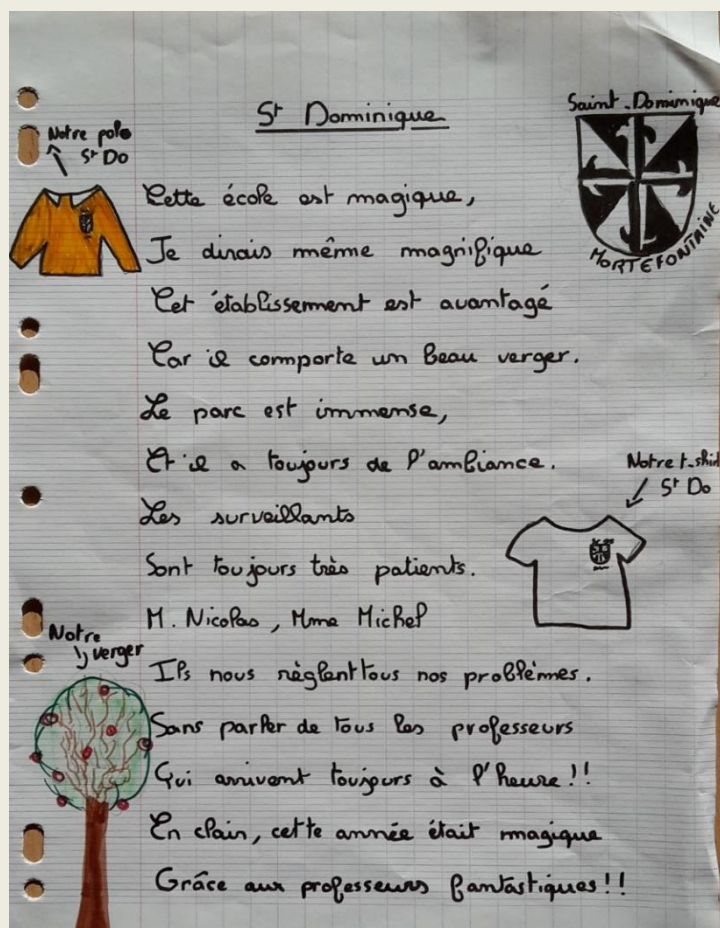 St Dominique
Saint-Dominique
MORTEFONTAINE
Notre polo
St Do
Cette école est magique,
Je dirais même magnifique
Cet établissement est avantagé
Car il comporte un beau verger.
Le parc est immense,
Et il a toujours de l'ambiance.
Notre t-shirt
St Do
Les surveillants
Sont toujours très patients.
M. Nicolas, Mme Michel
Notre
verger
Ils nous règlent tous nos problèmes.
Sans parler de tous les professeurs
Qui arrivent toujours à l'heure!!
En clair, cette année était magique
Grâce aux professeurs fantastiques!!